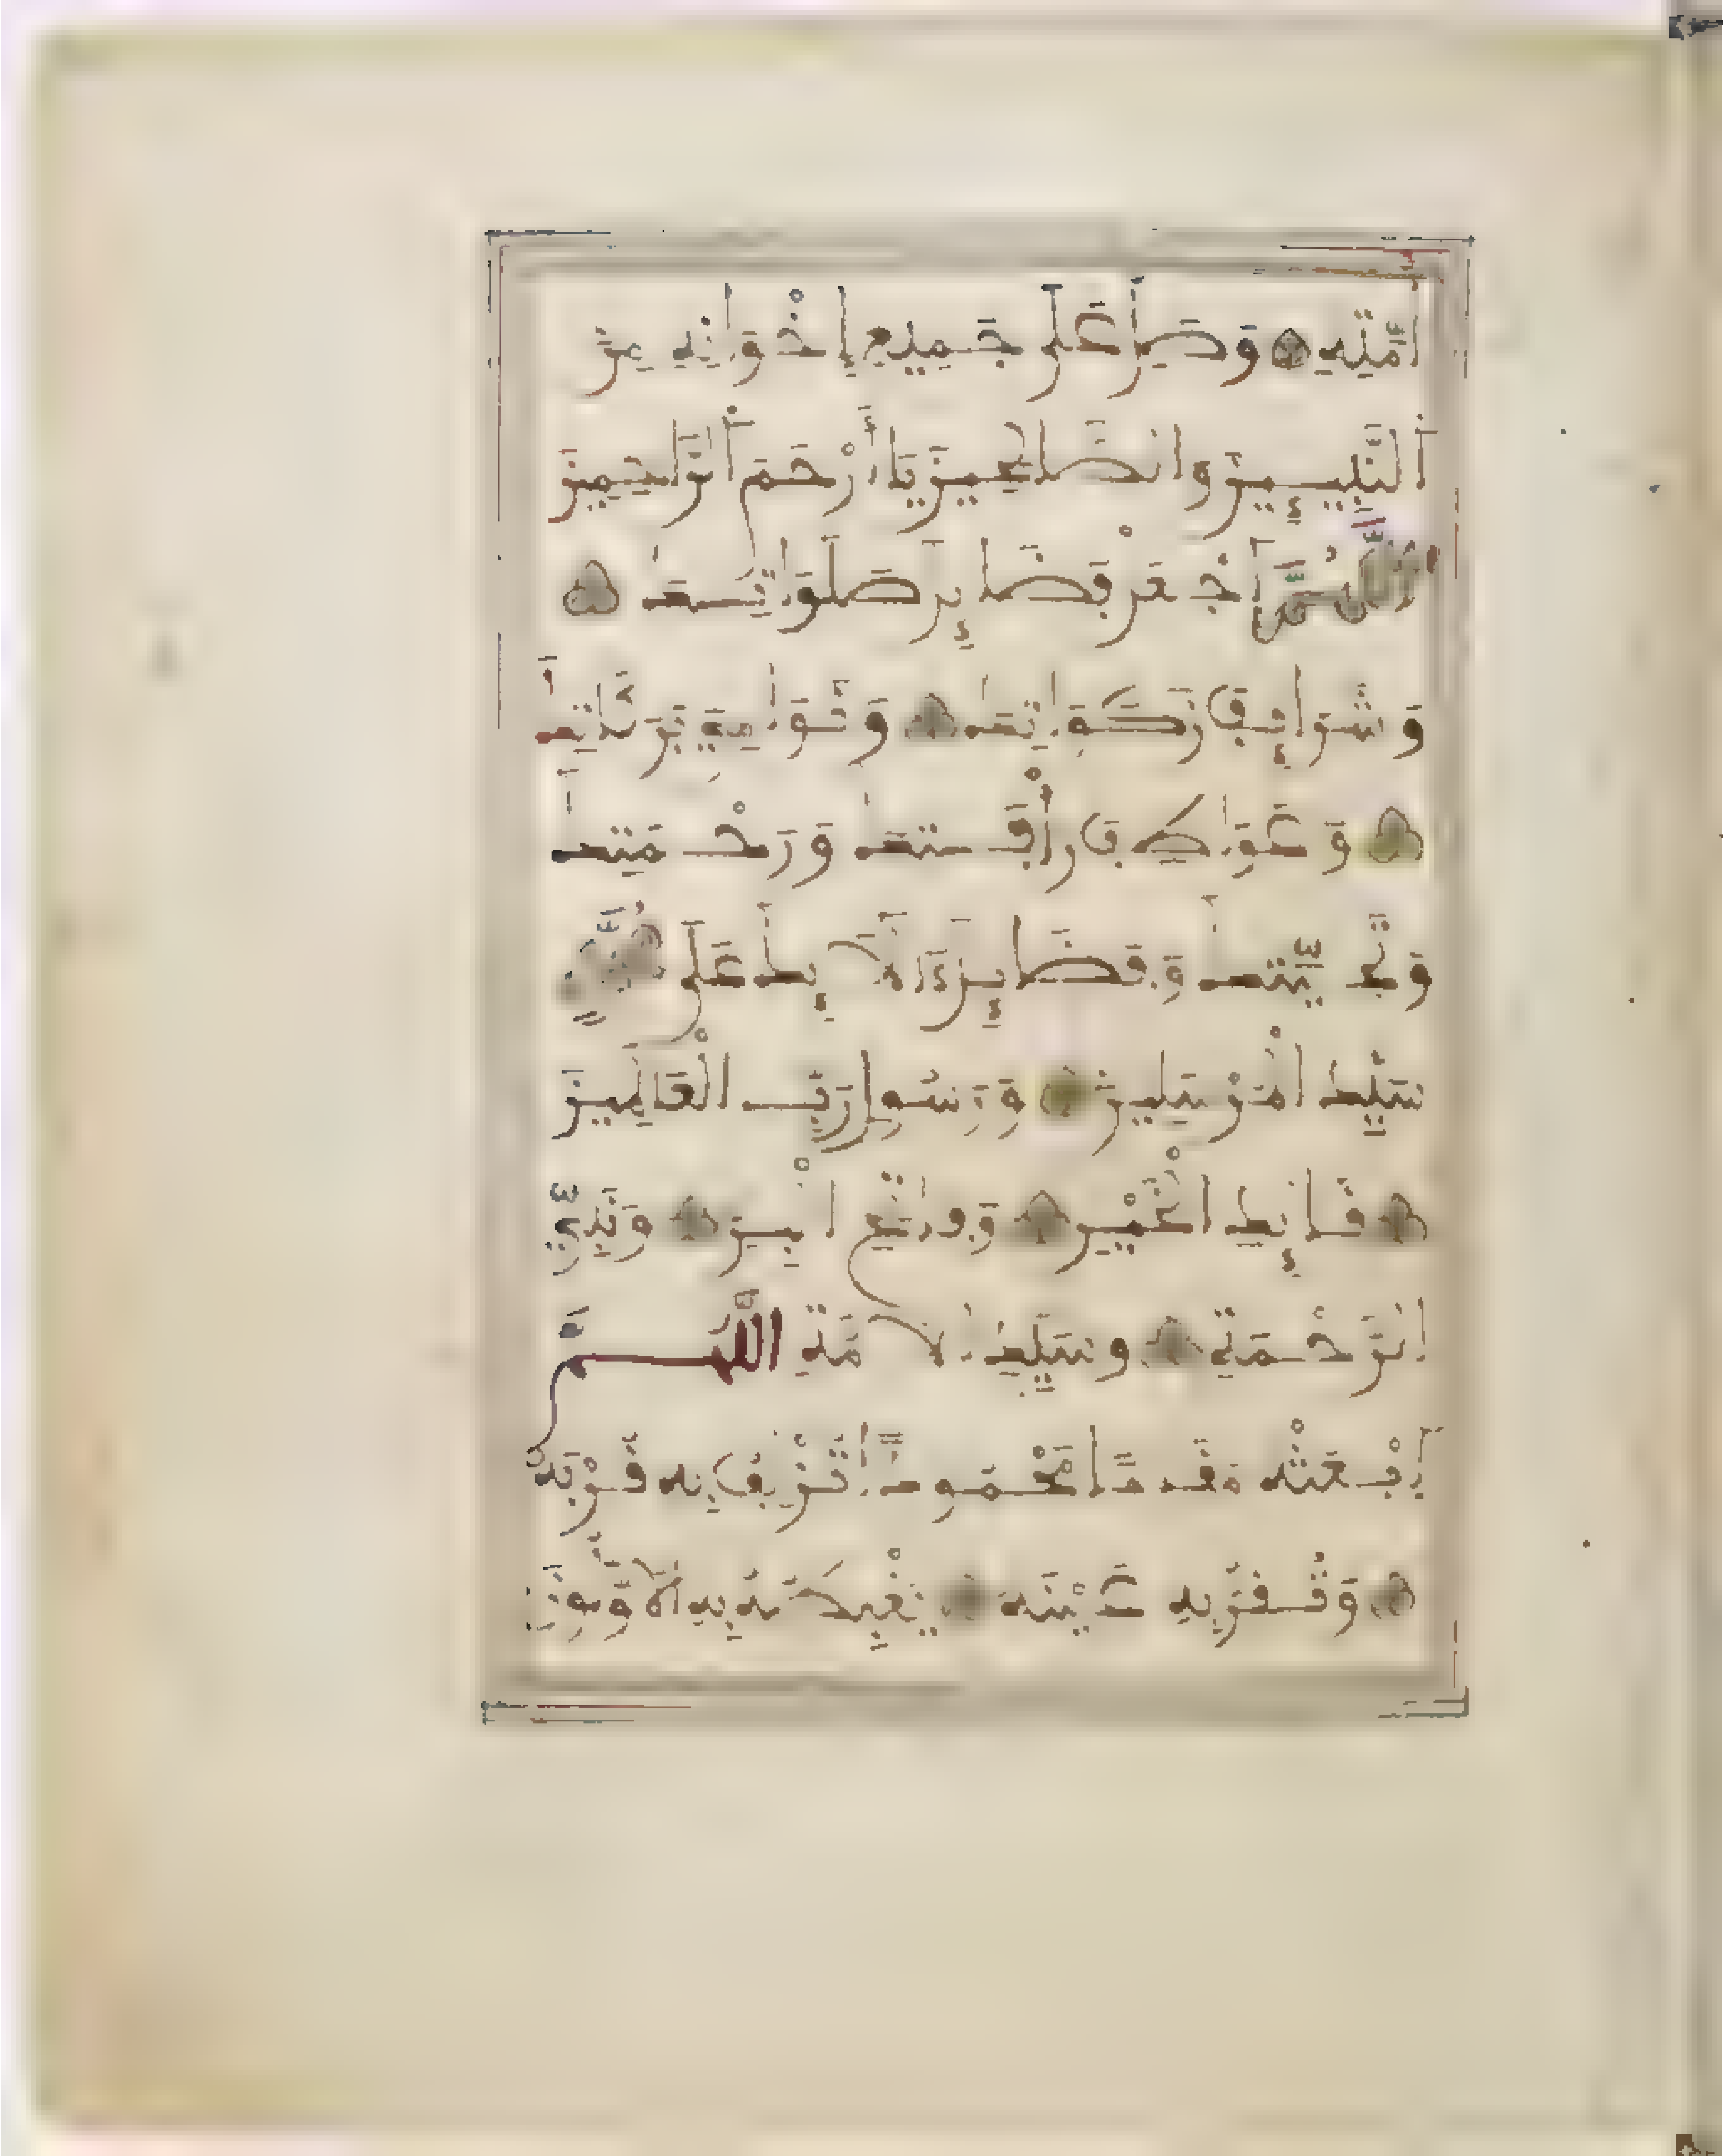 أُمَّتِهِ وَصَلِّ عَلَى جَمِيعِ إِخْوَانِهِ مِنَ
النَّبِيِّينَ وَالصَّالِحِينَ يَا أَرْحَمَ الرَّاحِمِينَ
اللَّهُمَّ اجْعَلْ فَضَائِلَ صَلَوَاتِكَ
وَشَرَائِفَ زَكَوَاتِكَ وَنَوَامِيَ بَرَكَاتِكَ
وَعَوَاطِفَ رَأْفَتِكَ وَرَحْمَتِكَ
وَتَحِيَّتِكَ وَفَضَائِلَ ءَالَائِكَ عَلَى مُحَمَّدٍ
سَيِّدِ الْمُرْسَلِينَ وَرَسُولِ رَبِّ الْعَالَمِينَ
قَائِدِ الْخَيْرِ وَفَاتِحِ الْبِرِّ وَنَبِيِّ
الرَّحْمَةِ وَسَيِّدِ الْأُمَّةِ اللَّهُمَّ
ابْعَثْهُ مَقَامًا مَحْمُودًا تُزْلِفُ بِهِ قُرْبَهُ
وَتُقِرُّ بِهِ عَيْنَهُ يَغْبِطُهُ بِهِ الْأَوَّلُونَ